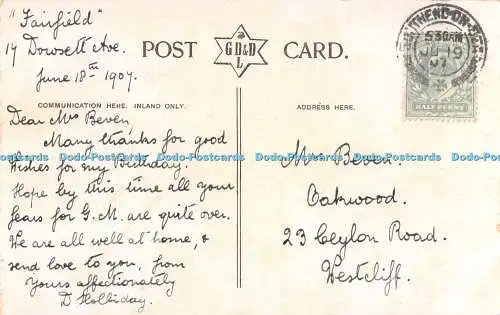 "Fairfield"
17 Dowsett Ave.
June 18th 1907.
POST CARD.
G.D.&D
L
COMMUNICATION HERE. INLAND ONLY.
ADDRESS HERE.
5.30AM
JU 19
07
HALF PENNY
Dear Mrs Beven,
Many thanks for good
Dodo-Postcards Dodo-Postcards Dodo-Postcards Dodo-Postcards Dodo-Postcards Dodo-Postcards
wishes for my Birthday.
Hope by this time all your
fears for G.M. are quite over.
We are all well at home, &
send love to you, from
Yours affectionately
D Holliday.
Mrs Beven.
Oakwood.
23 Ceylon Road.
Westcliff.